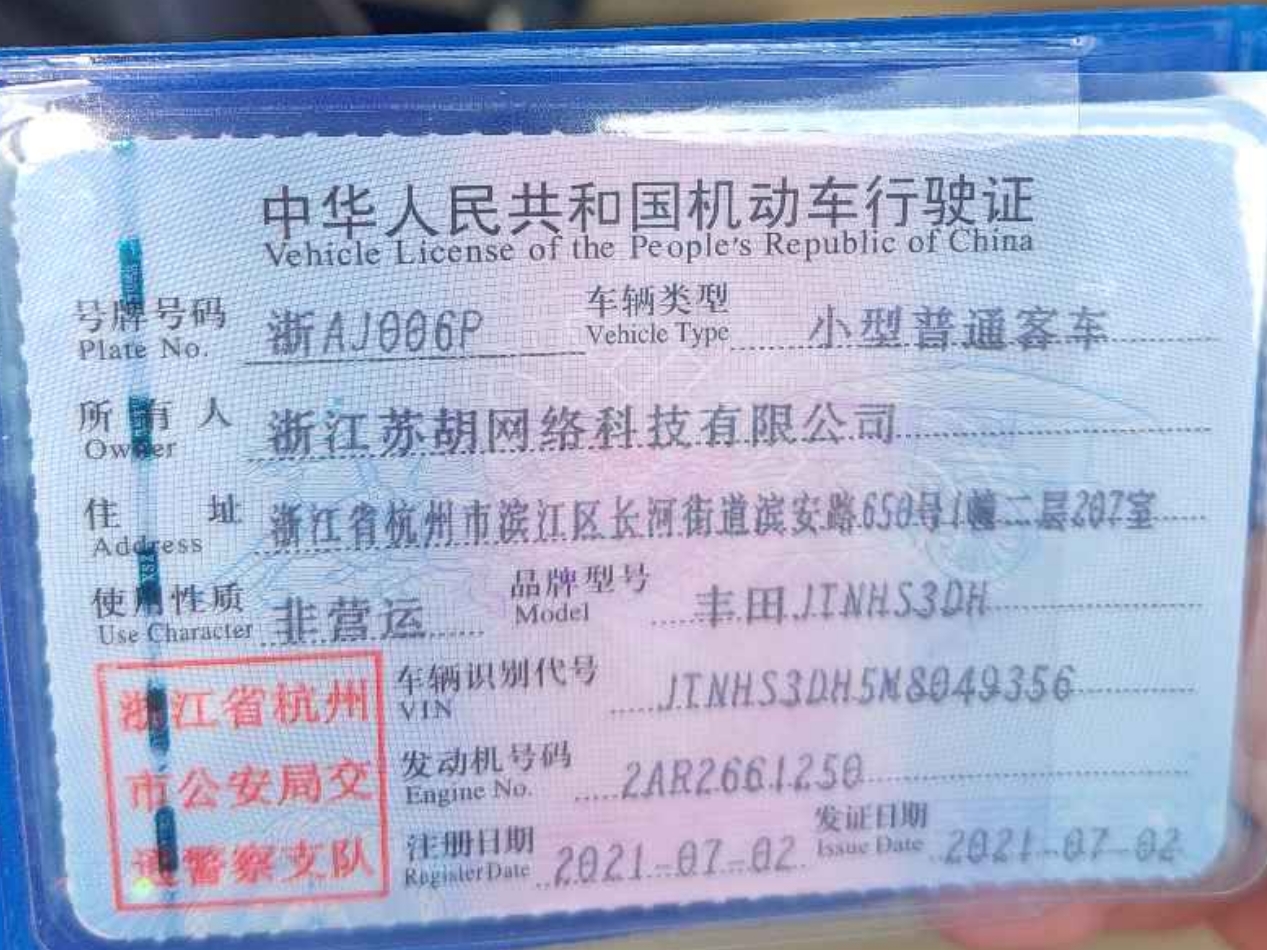 中华人民共和国机动车行驶证
Vehicle License of the People's Republic of China
号牌号码 浙AJ006P 车辆类型 小型普通客车
Plate No. Vehicle Type
所有人 浙江苏胡网络科技有限公司
Owner
住址 浙江省杭州市滨江区长河街道滨安路650号1幢二层207室
Address
使用性质 非营运 品牌型号 丰田JTNHS3DH
Use Character Model
车辆识别代号 JTNHS3DH5M8049356
VIN
发动机号码 2AR2661250
Engine No.
注册日期 2021-07-02 发证日期 2021-07-02
Register Date Issue Date
浙江省杭州
市公安局交
通警察支队